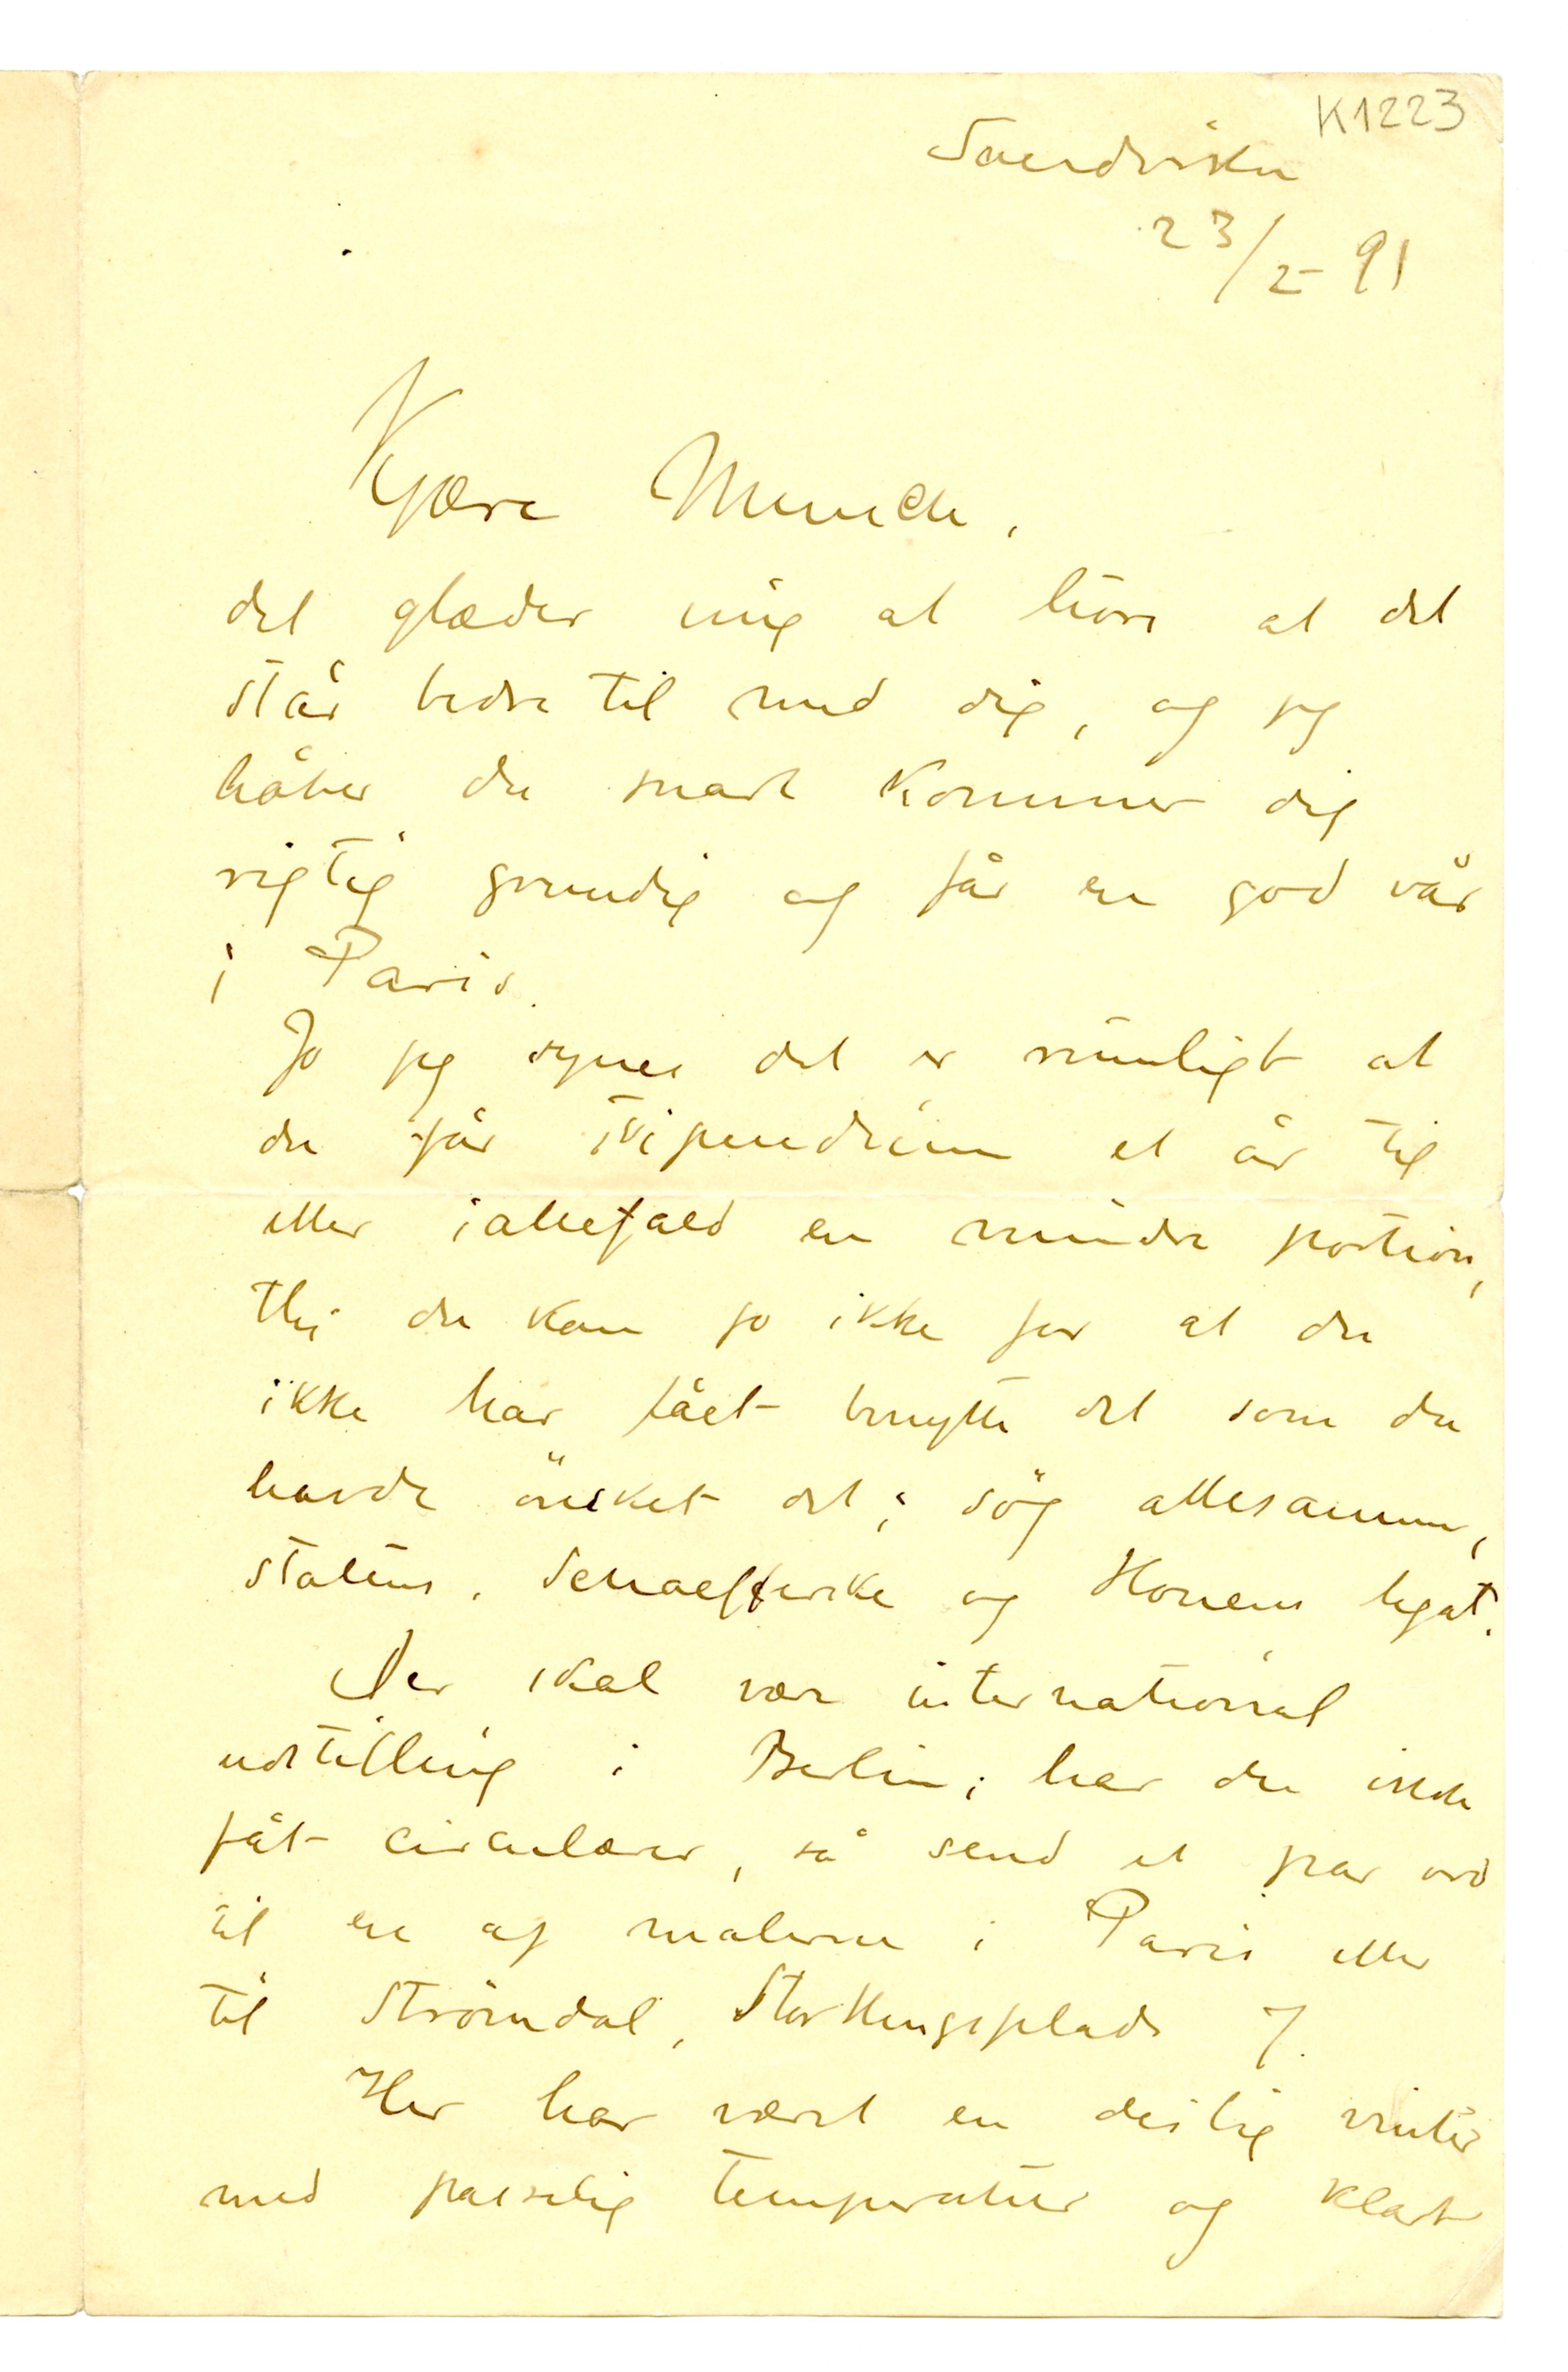 K1223
Sandviken
23/2 91
Kjære Munch,
det glæder mig at höre at det
står bedre til med dig, og jeg
håber du snart kommer dig
rigtig grundig og får en god vår
i Paris.
Jo jeg synes det er rimeligt at
du får stipendium et år til
eller iallefald en mindre portion,
thi du kan jo ikke for at du
ikke har fået benytte det som du
havde önsket det; søg allesammen,
statens, Schaefferske og Hounens legat.
Der skal være international
udstilling i Berlin; har du ikke
fåt circulærer, så send et par ord
til en af malerne i Paris eller
til Strömdal, Storthingsplads 7.
Her har været en deilig vinter
med passelig temperatur og klart